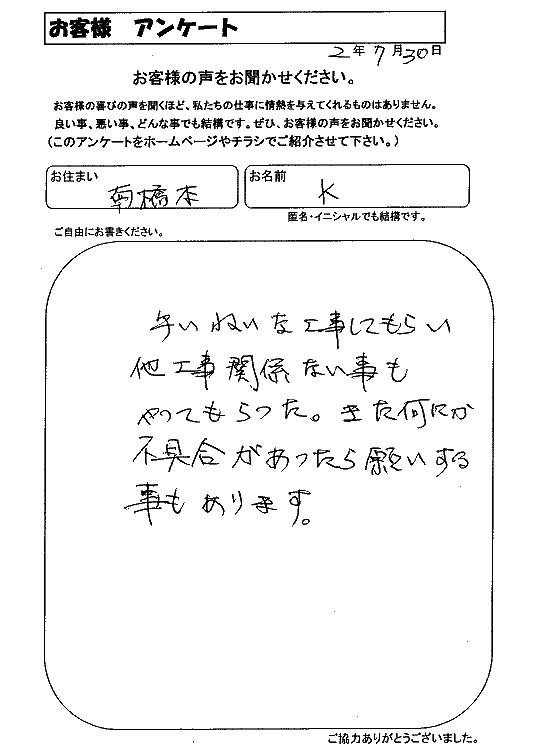 お客様 アンケート
2年7月30日
お客様の声をお聞かせください。
お客様の喜びの声を聞くほど、私たちの仕事に情熱を与えてくれるものはありません。
良い事、悪い事、どんな事でも結構です。ぜひ、お客様の声をお聞かせください。
(このアンケートをホームページやチラシでご紹介させて下さい。)
お住まい 南橋本
お名前 K
匿名・イニシャルでも結構です。
ご自由にお書きください。
ていねいな工事してもらい
他工事関係ない事も
やってもらった。また何にか
不具合があったら願いする
事もあります。
ご協力ありがとうございました。